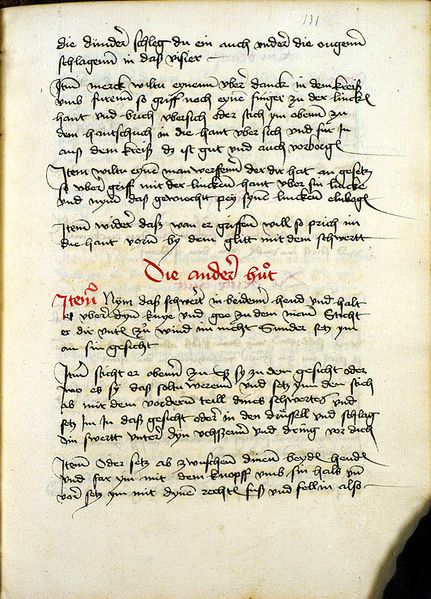 131
die dunderñ schleg du ein auch under die ougenn
schlagenn in das visier
Itm̃ merck wiltu eynenn uber danck in dem kreiß
umb furenn so griff nach eyne finger zu der linckē
hant und brich ubersich oder stich ym obenn zu
dem hantschuch in die hant uber sich und für in
auß dem kreiß dz ist gut und auch verborgē
Item wiltu eynē man werffenn der dir hat an gesetz
so uber griff mit der lincken hant uber sin lincke
und nym das gewucht by syne lincken elbogē
Item wider das von er griffen will so prich im
die hant vorn by dem glitt mit dem schwertt
Die ander hůt
Item Nym daß schwert in beidenn hend und halt
es uber dyn knye und gee zu dem man Sticht
er dir unten zu wind im nicht Sunder setz ym
an sin gesicht
Itm̃ sticht er obenn zu es sy zu dem gesicht oder
wo es sy das soltu werenn und setz ym den stich
ab mit dem vordern teill dines schwertes und
setz im in daß gesicht oder in den drussell und schlag
din swertt unter dyn uchsenn und dring vor dich
Itenn Oder setz ab zwuschenn dinenn beydē hendē
und far ym mit dem knopff umb sin halß uñ
vor setz ym mit dynem rechtē fuß und fell in also